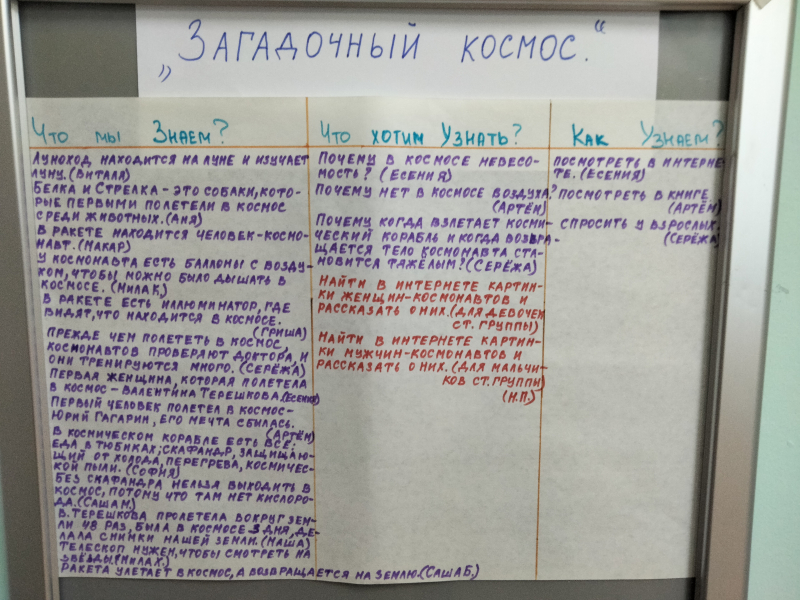 „Загадочный космос.“
Что мы Знаем?
Луноход находится на луне и изучает
луну. (Виталя)
Белка и Стрелка - это собаки, кото-
рые первыми полетели в космос
среди животных. (Аня)
В ракете находится человек-космо-
навт. (Макар)
У космонавта есть баллоны с возду-
хом, чтобы можно было дышать в
космосе. (Милах)
В ракете есть иллюминатор, где
видят, что находится в космосе.
(Гриша)
Прежде чем полететь в космос,
космонавтов проверяют доктора, и
они тренируются много. (Серёжа)
Первая женщина, которая полетела
в космос - Валентина Терешкова. (Есения)
Первый человек полетел в космос-
Юрий Гагарин, его мечта сбылась.
(Артём)
В космическом корабле есть всё:
еда в тюбиках; скафандр, защищаю-
щий от холода, перегрева, космичес-
кой пыли. (София)
Без скафандра нельзя выходить в
космос, потому что там нет кислоро-
да. (Саша М.)
В. Терешкова пролетела вокруг зем-
ли 48 раз, была в космосе 3 дня, де-
лала снимки нашей земли. (Маша)
Телескоп нужен, чтобы смотреть на
звёзды. (Милах.)
Ракета улетает в космос, а возвращается на землю. (Саша Б.)
Что хотим Узнать?
Почему в космосе невесо-
мость? (Есения)
Почему нет в космосе воздуха?
(Артём)
Почему когда взлетает косми-
ческий корабль и когда возвра-
щается тело космонавта ста-
новится тяжелым? (Серёжа)
Найти в интернете картин-
ки женщин-космонавтов и
рассказать о них. (для девочек
ст. группы)
Найти в интернете картин-
ки мужчин-космонавтов и
рассказать о них. (для мальчи-
ков ст. группы)
(Н.П.)
Как Узнаем?
Посмотреть в интерне-
те. (Есения)
Посмотреть в книге
(Артём)
Спросить у взрослых.
(Серёжа)